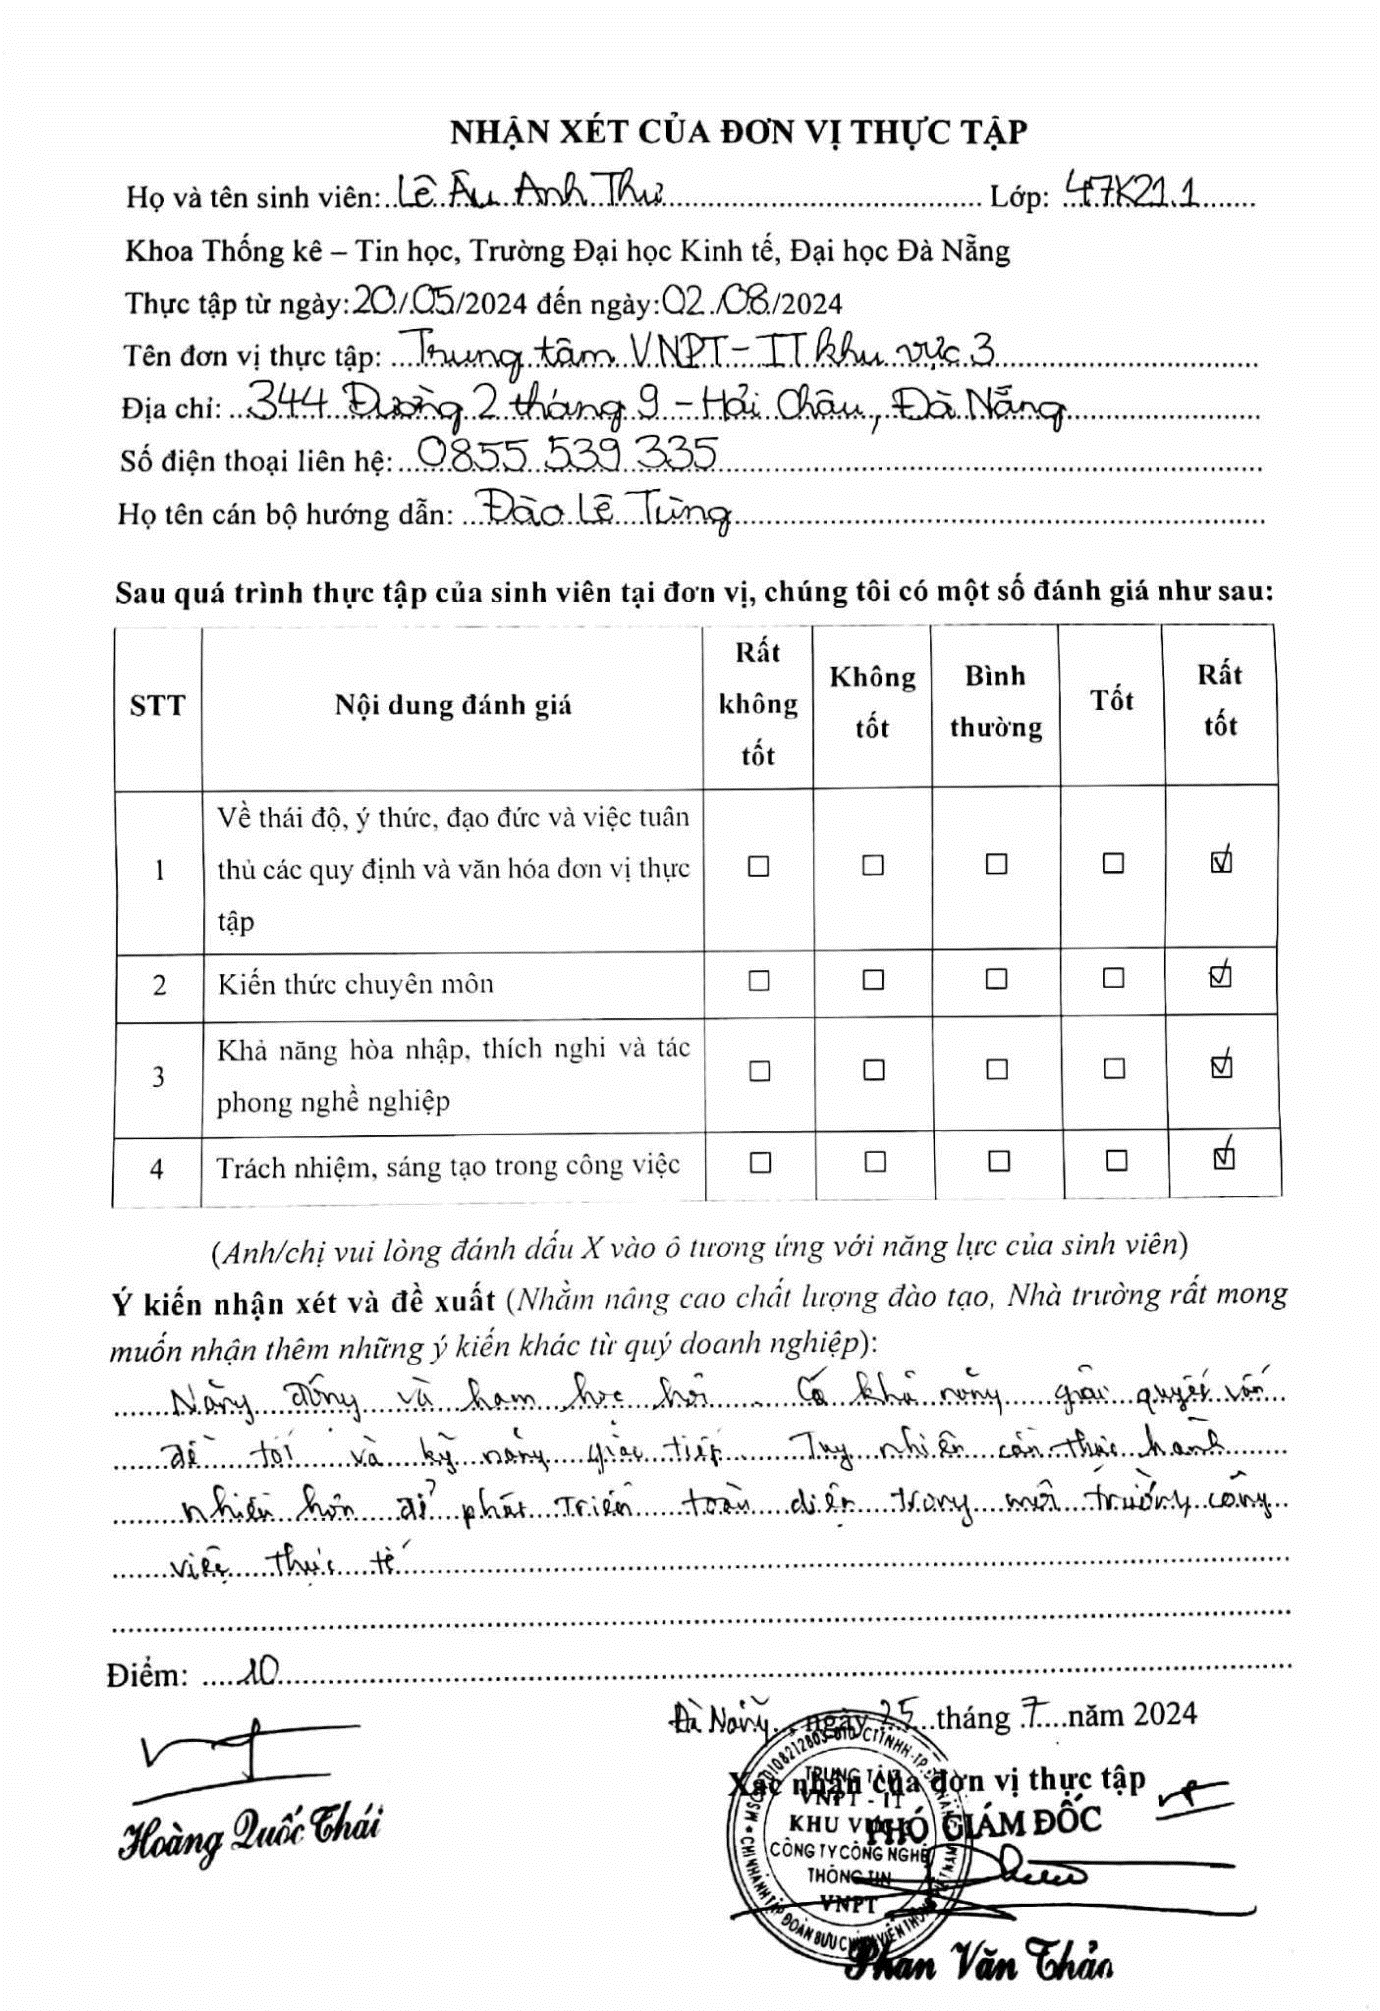 NHẬN XÉT CỦA ĐƠN VỊ THỰC TẬP
Họ và tên sinh viên: Lê Âu Anh Thư Lớp: 47K21.1
Khoa Thống kê – Tin học, Trường Đại học Kinh tế, Đại học Đà Nẵng
Thực tập từ ngày: 20/05/2024 đến ngày: 02/08/2024
Tên đơn vị thực tập: Trung tâm VNPT-IT khu vực 3
Địa chỉ: 344 Đường 2 tháng 9 - Hải Châu, Đà Nẵng
Số điện thoại liên hệ: 0855 539 335
Họ tên cán bộ hướng dẫn: Đào Lê Tùng
Sau quá trình thực tập của sinh viên tại đơn vị, chúng tôi có một số đánh giá như sau:
STT Nội dung đánh giá Rất không tốt Không tốt Bình thường Tốt Rất tốt
1 Về thái độ, ý thức, đạo đức và việc tuân
thủ các quy định và văn hóa đơn vị thực
tập
2 Kiến thức chuyên môn
3 Khả năng hòa nhập, thích nghi và tác
phong nghề nghiệp
4 Trách nhiệm, sáng tạo trong công việc
(Anh/chị vui lòng đánh dấu X vào ô tương ứng với năng lực của sinh viên)
Ý kiến nhận xét và đề xuất (Nhằm nâng cao chất lượng đào tạo, Nhà trường rất mong
muốn nhận thêm những ý kiến khác từ quý doanh nghiệp):
Năng động và ham học hỏi. Có khả năng giải quyết vấn
đề tốt và kỹ năng giao tiếp. Tuy nhiên cần thực hành
nhiều hơn để phát triển toàn diện trong môi trường công
việc thực tế
Điểm: 10
Đà Nẵng, ngày 25 tháng 7 năm 2024
Xác nhận của đơn vị thực tập
PHÓ GIÁM ĐỐC
TRUNG TÂM
VNPT - IT
KHU VỰC 3
CÔNG TY CÔNG NGHỆ
THÔNG TIN
VNPT
Hoàng Quốc Thái
Phan Văn Thảo